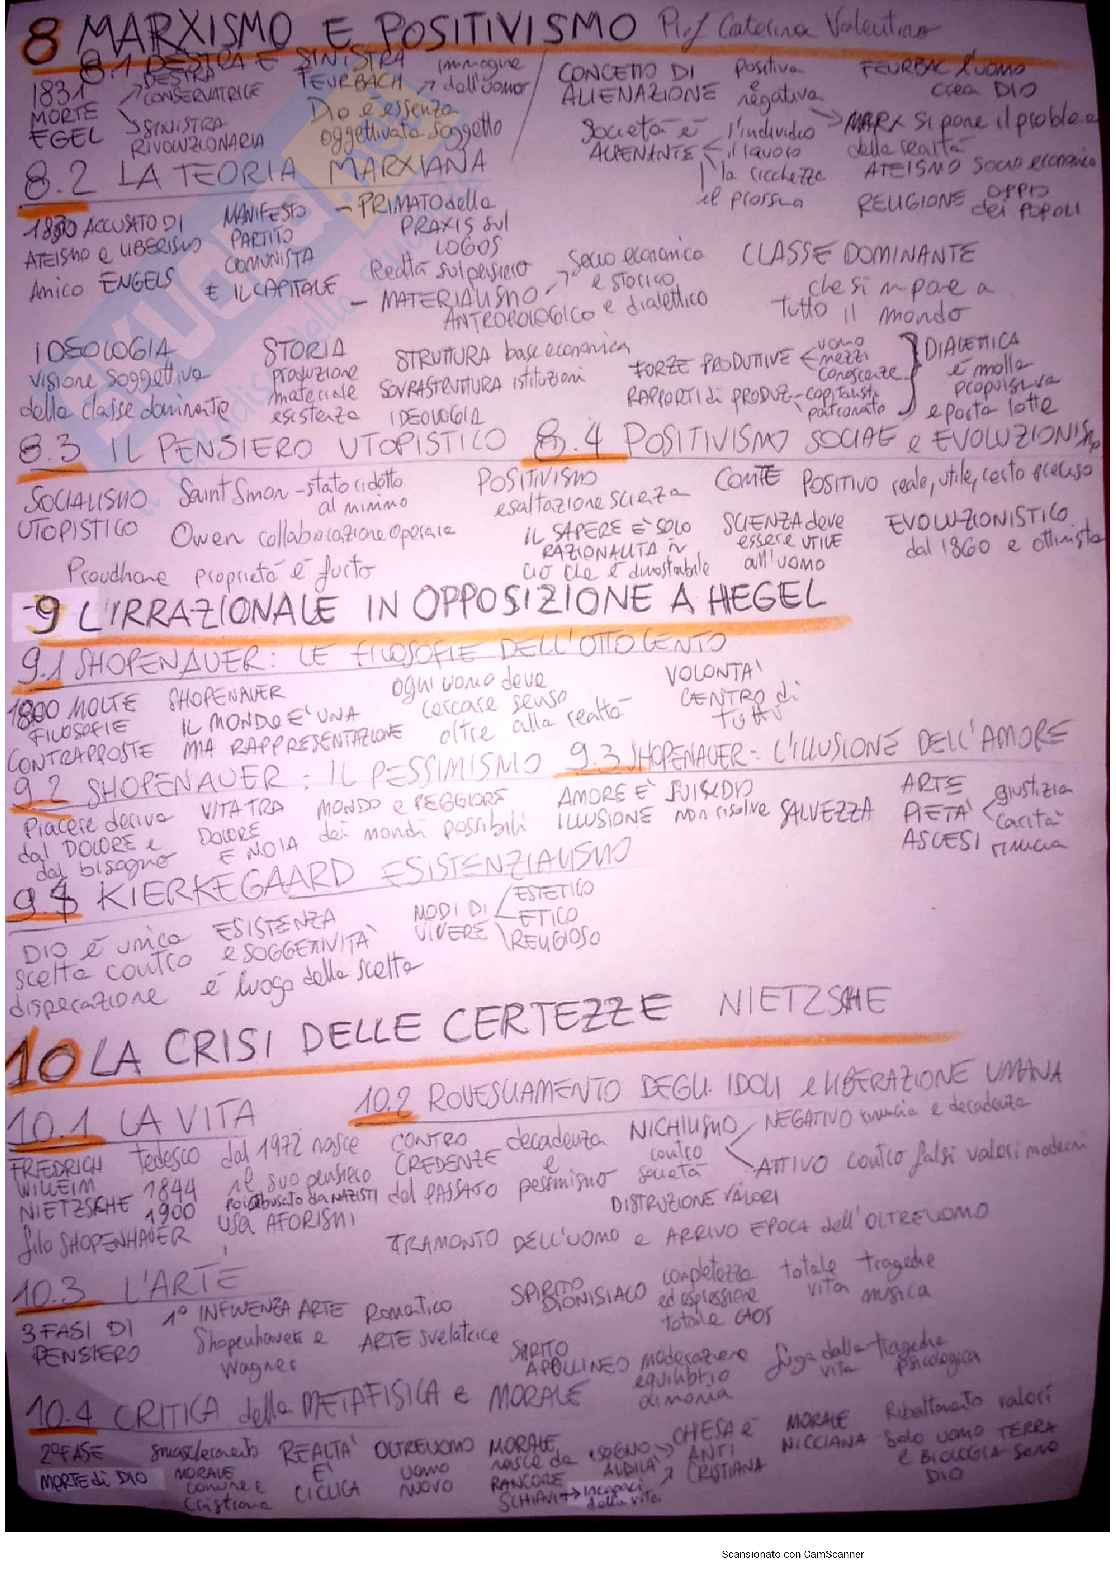 8 MARXISMO E POSITIVISMO Prof Caterina Valentino
8.1 DESTRA E SINISTRA
1831 MORTE EGEL
DESTRA CONSERVATRICE
SINISTRA RIVOLUZIONARIA
FEURBACH immagine dell'uomo
Dio è essenza oggettivata soggetto
CONCETTO DI ALIENAZIONE positiva negativa
FEURBAC l'uomo crea DIO
MARX si pone il problema della realtà
Società è ALIENANTE l'individuo il lavoro la ricchezza
ATEISMO Socio economico
RELIGIONE OPPIO dei POPOLI
8.2 LA TEORIA MARXIANA
ACCUSATO DI ATEISMO e LIBERISMO
Amico ENGELS
MANIFESTO PARTITO COMUNISTA E IL CAPITALE
- PRIMATO della PRAXIS sul LOGOS
Realtà sul pensiero
- MATERIALISMO Socio economico e storico
ANTROPOLOGICO e dialettico
CLASSE DOMINANTE che si impone a tutto il mondo
IDEOLOGIA visione soggettiva della classe dominante
STORIA produzione materiale esistenza
STRUTTURA base economica
SOVRASTRUTTURA istituzioni IDEOLOGIA
FORZE PRODUTTIVE uomo mezzi conoscenze
RAPPORTI di PRODUZ- capitalisti
DIALETTICA è molla propulsiva e porta lotte
8.3 IL PENSIERO UTOPISTICO
8.4 POSITIVISMO SOCIAE e EVOLUZIONISMO
SOCIALISMO UTOPISTICO
Saint Simon - stato ridotto al minimo
Owen collaborazione operaia
Proudhone proprietà è furto
POSITIVISMO esaltazione scienza
IL SAPERE È SOLO RAZIONALITA
ciò che è dimostabile
COMTE POSITIVO reale, utile, certo preciso
SCIENZA deve essere UTILE all'uomo
EVOLUZIONISTICO dal 1860 e ottimista
9 L'IRRAZIONALE IN OPPOSIZIONE A HEGEL
9.1 SHOPENAUER: LE FILOSOFIE DELL'OTTOCENTO
1800 MOLTE FILOSOFIE CONTRAPPOSTE
SHOPENAUER IL MONDO E' UNA MIA RAPPRESENTAZIONE
ogni uomo deve cercare senso oltre alla realtà
VOLONTA' CENTRO di TUTTO
9.2 SHOPENAUER: IL PESSIMISMO
9.3 SHOPENAUER: L'ILLUSIONE DELL'AMORE
Piacere deriva dal DOLORE e dal bisogno
VITA TRA DOLORE E NOIA
MONDO e PEGGIORE dei mondi possibili
AMORE E' ILLUSIONE
SUICIDIO non risolve
SALVEZZA
ARTE
PIETA' giustizia carità
ASCESI rinuncia
9.4 KIERKEGAARD ESISTENZIALISMO
DIO è unica scelta contro disperazione
ESISTENZA e SOGGETTIVITA' è luogo della scelta
MODI DI VIVERE
ESTETICO
ETICO
RELIGIOSO
10 LA CRISI DELLE CERTEZZE NIETZSCHE
10.1 LA VITA
10.2 ROVESCIAMENTO DEGLI IDOLI e LIBERAZIONE UMANA
FRIEDRICH WILLEIM NIETZSCHE
filo SHOPENHAUER
Tedesco 1844 1900
dal 1972 nasce il suo pensiero poi abusato da NAZISTI
USA AFORISMI
CONTRO CREDENZE del PASSATO
decadenza e pessimismo
NICHILISMO contro società
NEGATIVO rinuncia e decadenza
ATTIVO contro falsi valori moderni
DISTRUZIONE VALORI
TRAMONTO DELL'UOMO e ARRIVO EPOCA dell'OLTREUOMO
10.3 L'ARTE
3 FASI DI PENSIERO
1° INFLUENZA ARTE Shopenhauer e Wagner
Romantico ARTE svelatrice
SPIRITO DIONISIACO completezza ed espressione totale CAOS
totale vita tragedie musica
SPIRITO APOLLINEO moderazione equilibrio armonia
fuga dalla vita tragedie psicologica
10.4 CRITICA della METAFISICA e MORALE
2° FASE
MORTE di DIO
smascheramento MORALE comune e Cristiana
REALTA' E' CICLICA
OLTREUOMO UOMO NUOVO
MORALE nasce da RANCORE SCHIAVI incapaci della vita
CHIESA è ANTI CRISTIANA
MORALE NICCIANA
Ribaltamento valori
Solo uomo TERRA e BIOLOGIA sono DIO
Scansionato con CamScanner